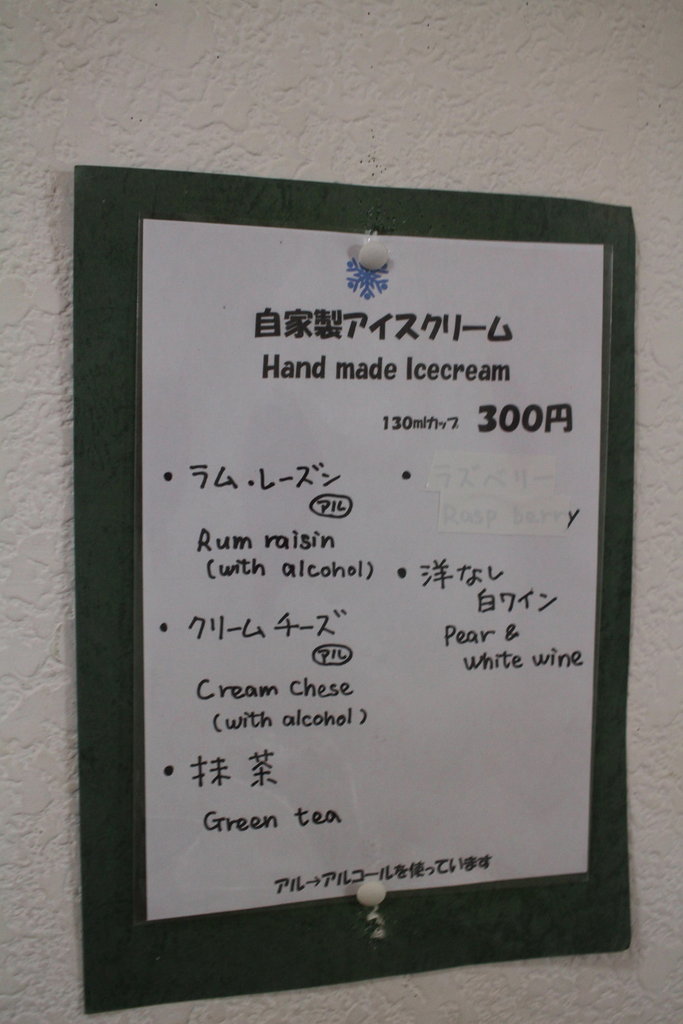 自家製アイスクリーム
Hand made Icecream
130mlカップ 300円
・ラム・レーズン
アル
Rum raisin
(with alcohol)
・クリームチーズ
アル
Cream Chese
(with alcohol)
・抹茶
Green tea
・ラズベリー
Rasp berry
・洋なし
白ワイン
Pear &
white wine
アル→アルコールを使っています